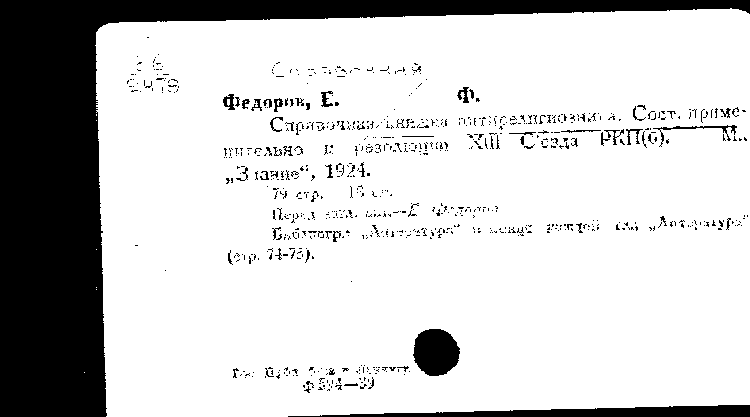 36
2478
Справочная
Федоров, Е. Ф.
Справочная книжка антирелигиозника. Сост. приме-
нительно к резолюции XIII С'езда РКП(б). М.,
„Знание“, 1924.
79 стр. 18 см.
Перед загл. авт.—Е. Федоров
Библиогр. „Литература“ в конце и „Литература“
(стр. 74-75).
Гос. Публ. б-ка в Ленингр.
Ф 594—39